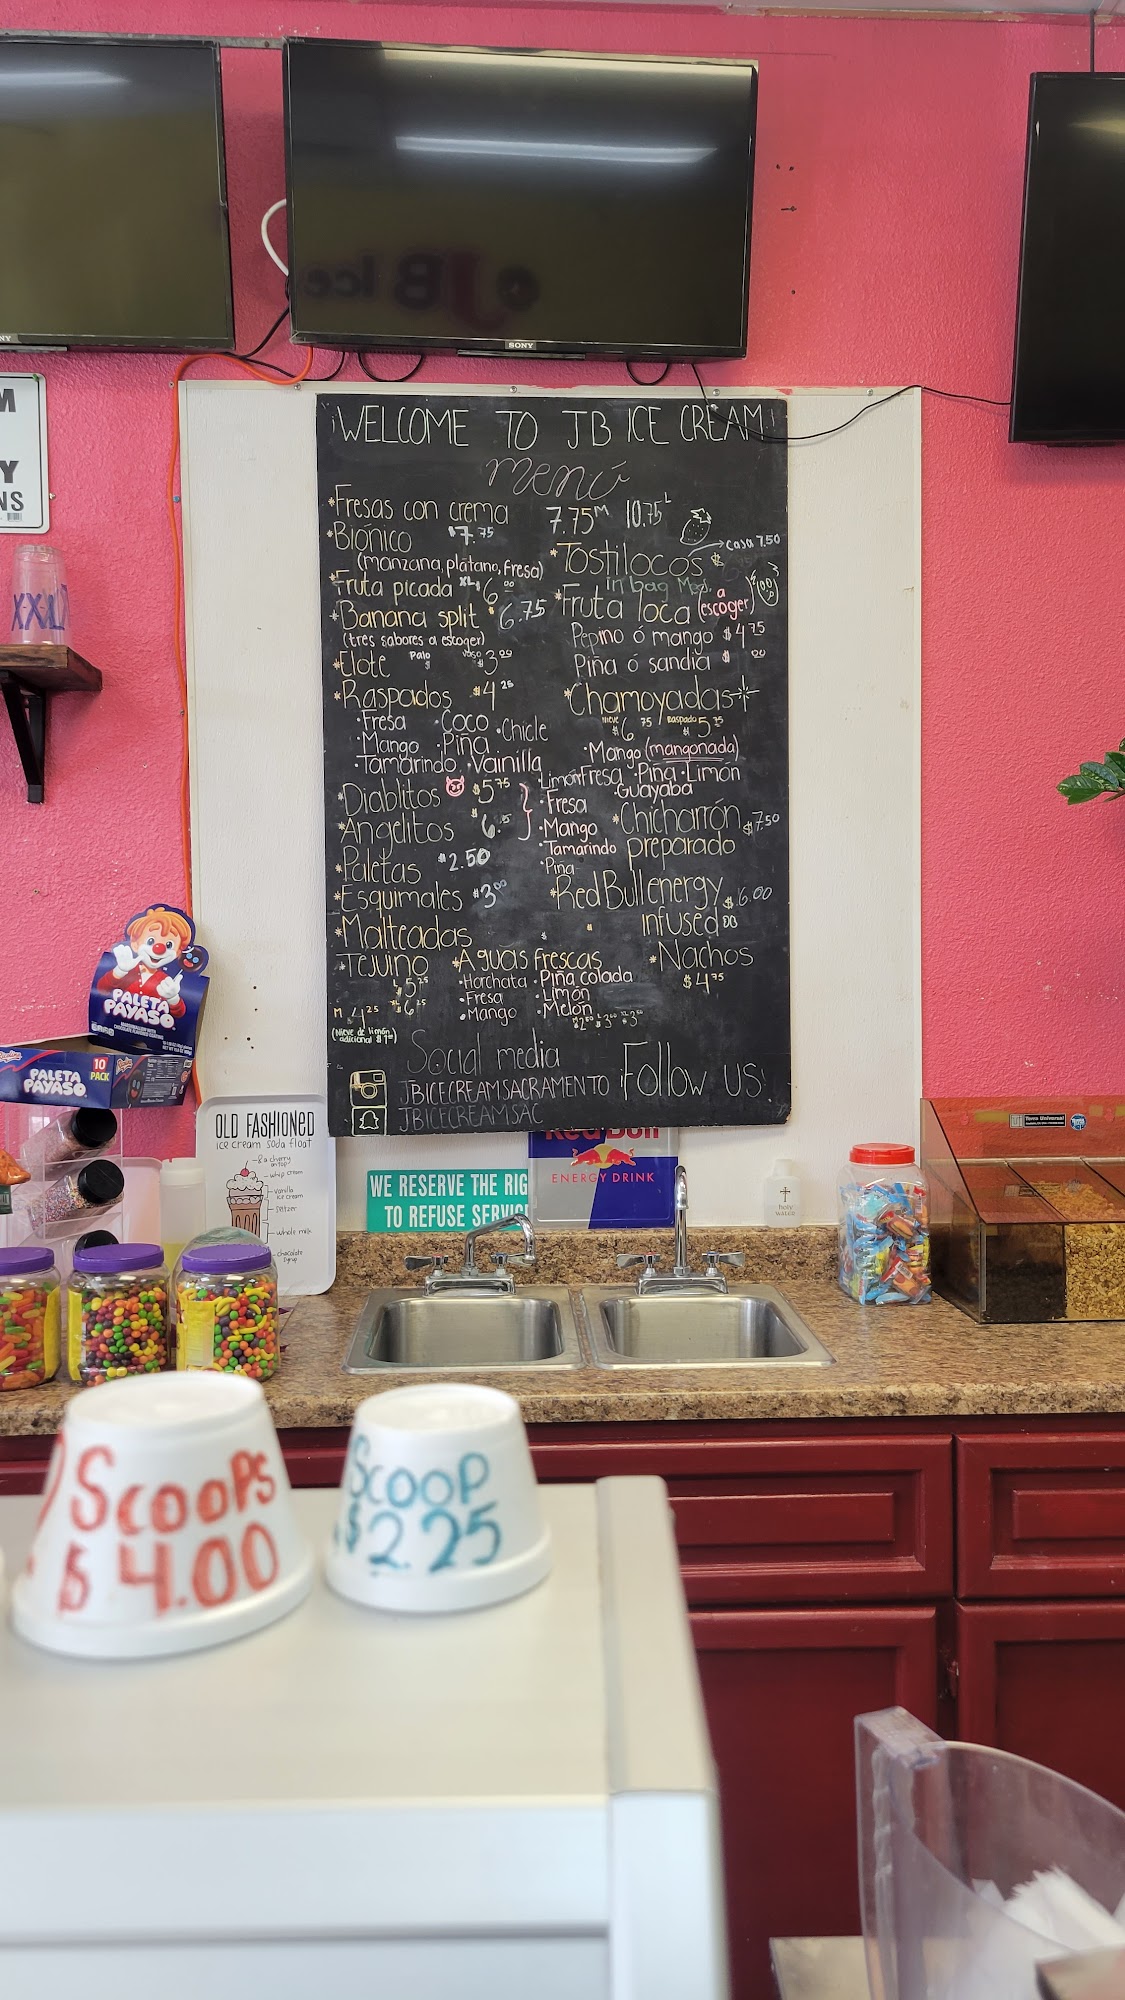 SONY
M
Y
NS
¡WELCOME TO JB ICE CREAM!
menú
*Fresas con crema 7.75 M 10.75 L
*Biónico $7.75
(manzana, plátano, fresa)
*Fruta picada XL $6.00
*Banana split $6.75
(tres sabores a escoger)
*Elote Palo $ Vaso $3.00
*Raspados $4.25
·Fresa ·Coco ·Chicle
·Mango ·Piña
·Tamarindo ·Vainilla
*Diablitos $5.75
*Angelitos 6.
·Limón
·Fresa
·Mango
·Tamarindo
·Piña
*Paletas $2.50
*Esquimales $3.00
*Malteadas
*Tejuino
L $5.25
XL $6.25
M $4.25
(Nieve de limón adicional
*Tostilocos $
Casa 7.50
in bag
*Fruta loca (a escoger)
Pepino ó mango $4.75
Piña ó sandia $ .00
*Chamoyadas
Nieve $6.75 Raspado $5.75
·Mango (mangonada)
·Fresa ·Piña ·Limon
·Guayaba
*Chicharrón preparado $7.50
*RedBull energy infused $6.00
*Aguas frescas
·Horchata ·Piña colada
·Fresa ·Limón
·Mango ·Melón
*Nachos
$4.75
Social media ¡Follow us!
JBICECREAMSACRAMENTO
JBICECREAMSAC
PALETA
PAYASO
PALETA
PAYASO
10
PACK
OLD FASHIONED
ice cream soda float
& a cherry
on top
whip cream
vanilla
ice cream
seltzer
whole milk
chocolate
syrup
WE RESERVE THE RIG
TO REFUSE SERVICE
Red Bull
ENERGY DRINK
holy
WATER
Terra Universal
Scoops
$4.00
Scoop
$2.25